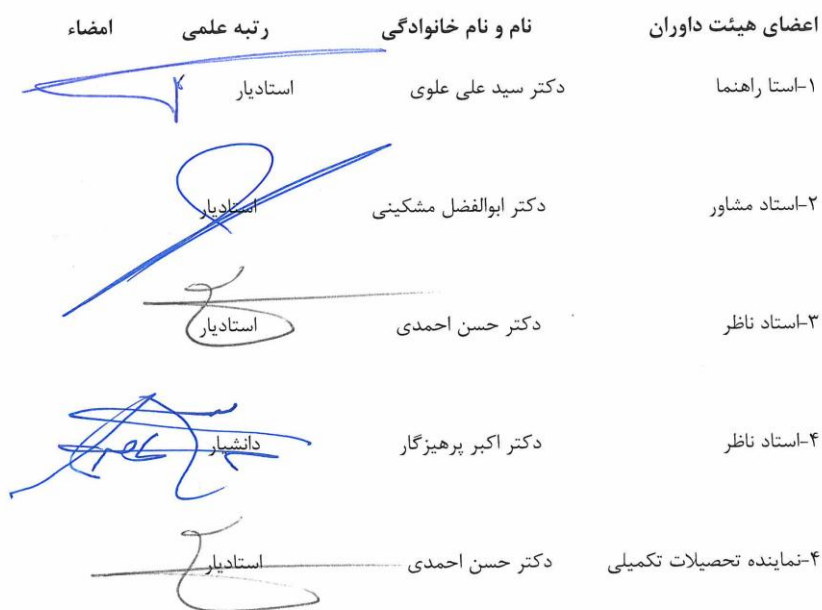 اعضای هیئت داوران نام و نام خانوادگی رتبه علمی امضاء
۱-استا راهنما دکتر سید علی علوی استادیار
۲-استاد مشاور دکتر ابوالفضل مشکینی استادیار
۳-استاد ناظر دکتر حسن احمدی استادیار
۴-استاد ناظر دکتر اکبر پرهیزگار دانشیار
۴-نماینده تحصیلات تکمیلی دکتر حسن احمدی استادیار